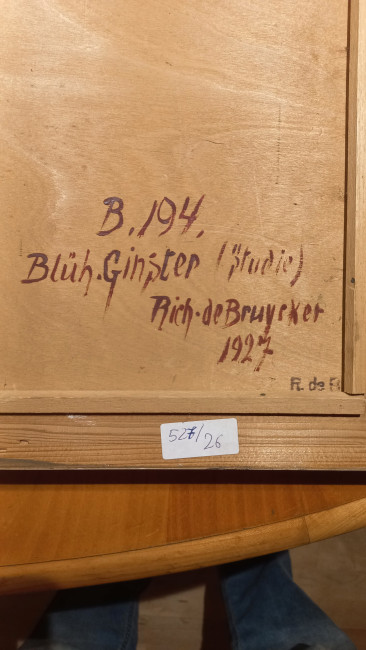 B. 194.
Blüh. Ginster (Studie)
Rich. de Bruycker
1927
R. de
527/26